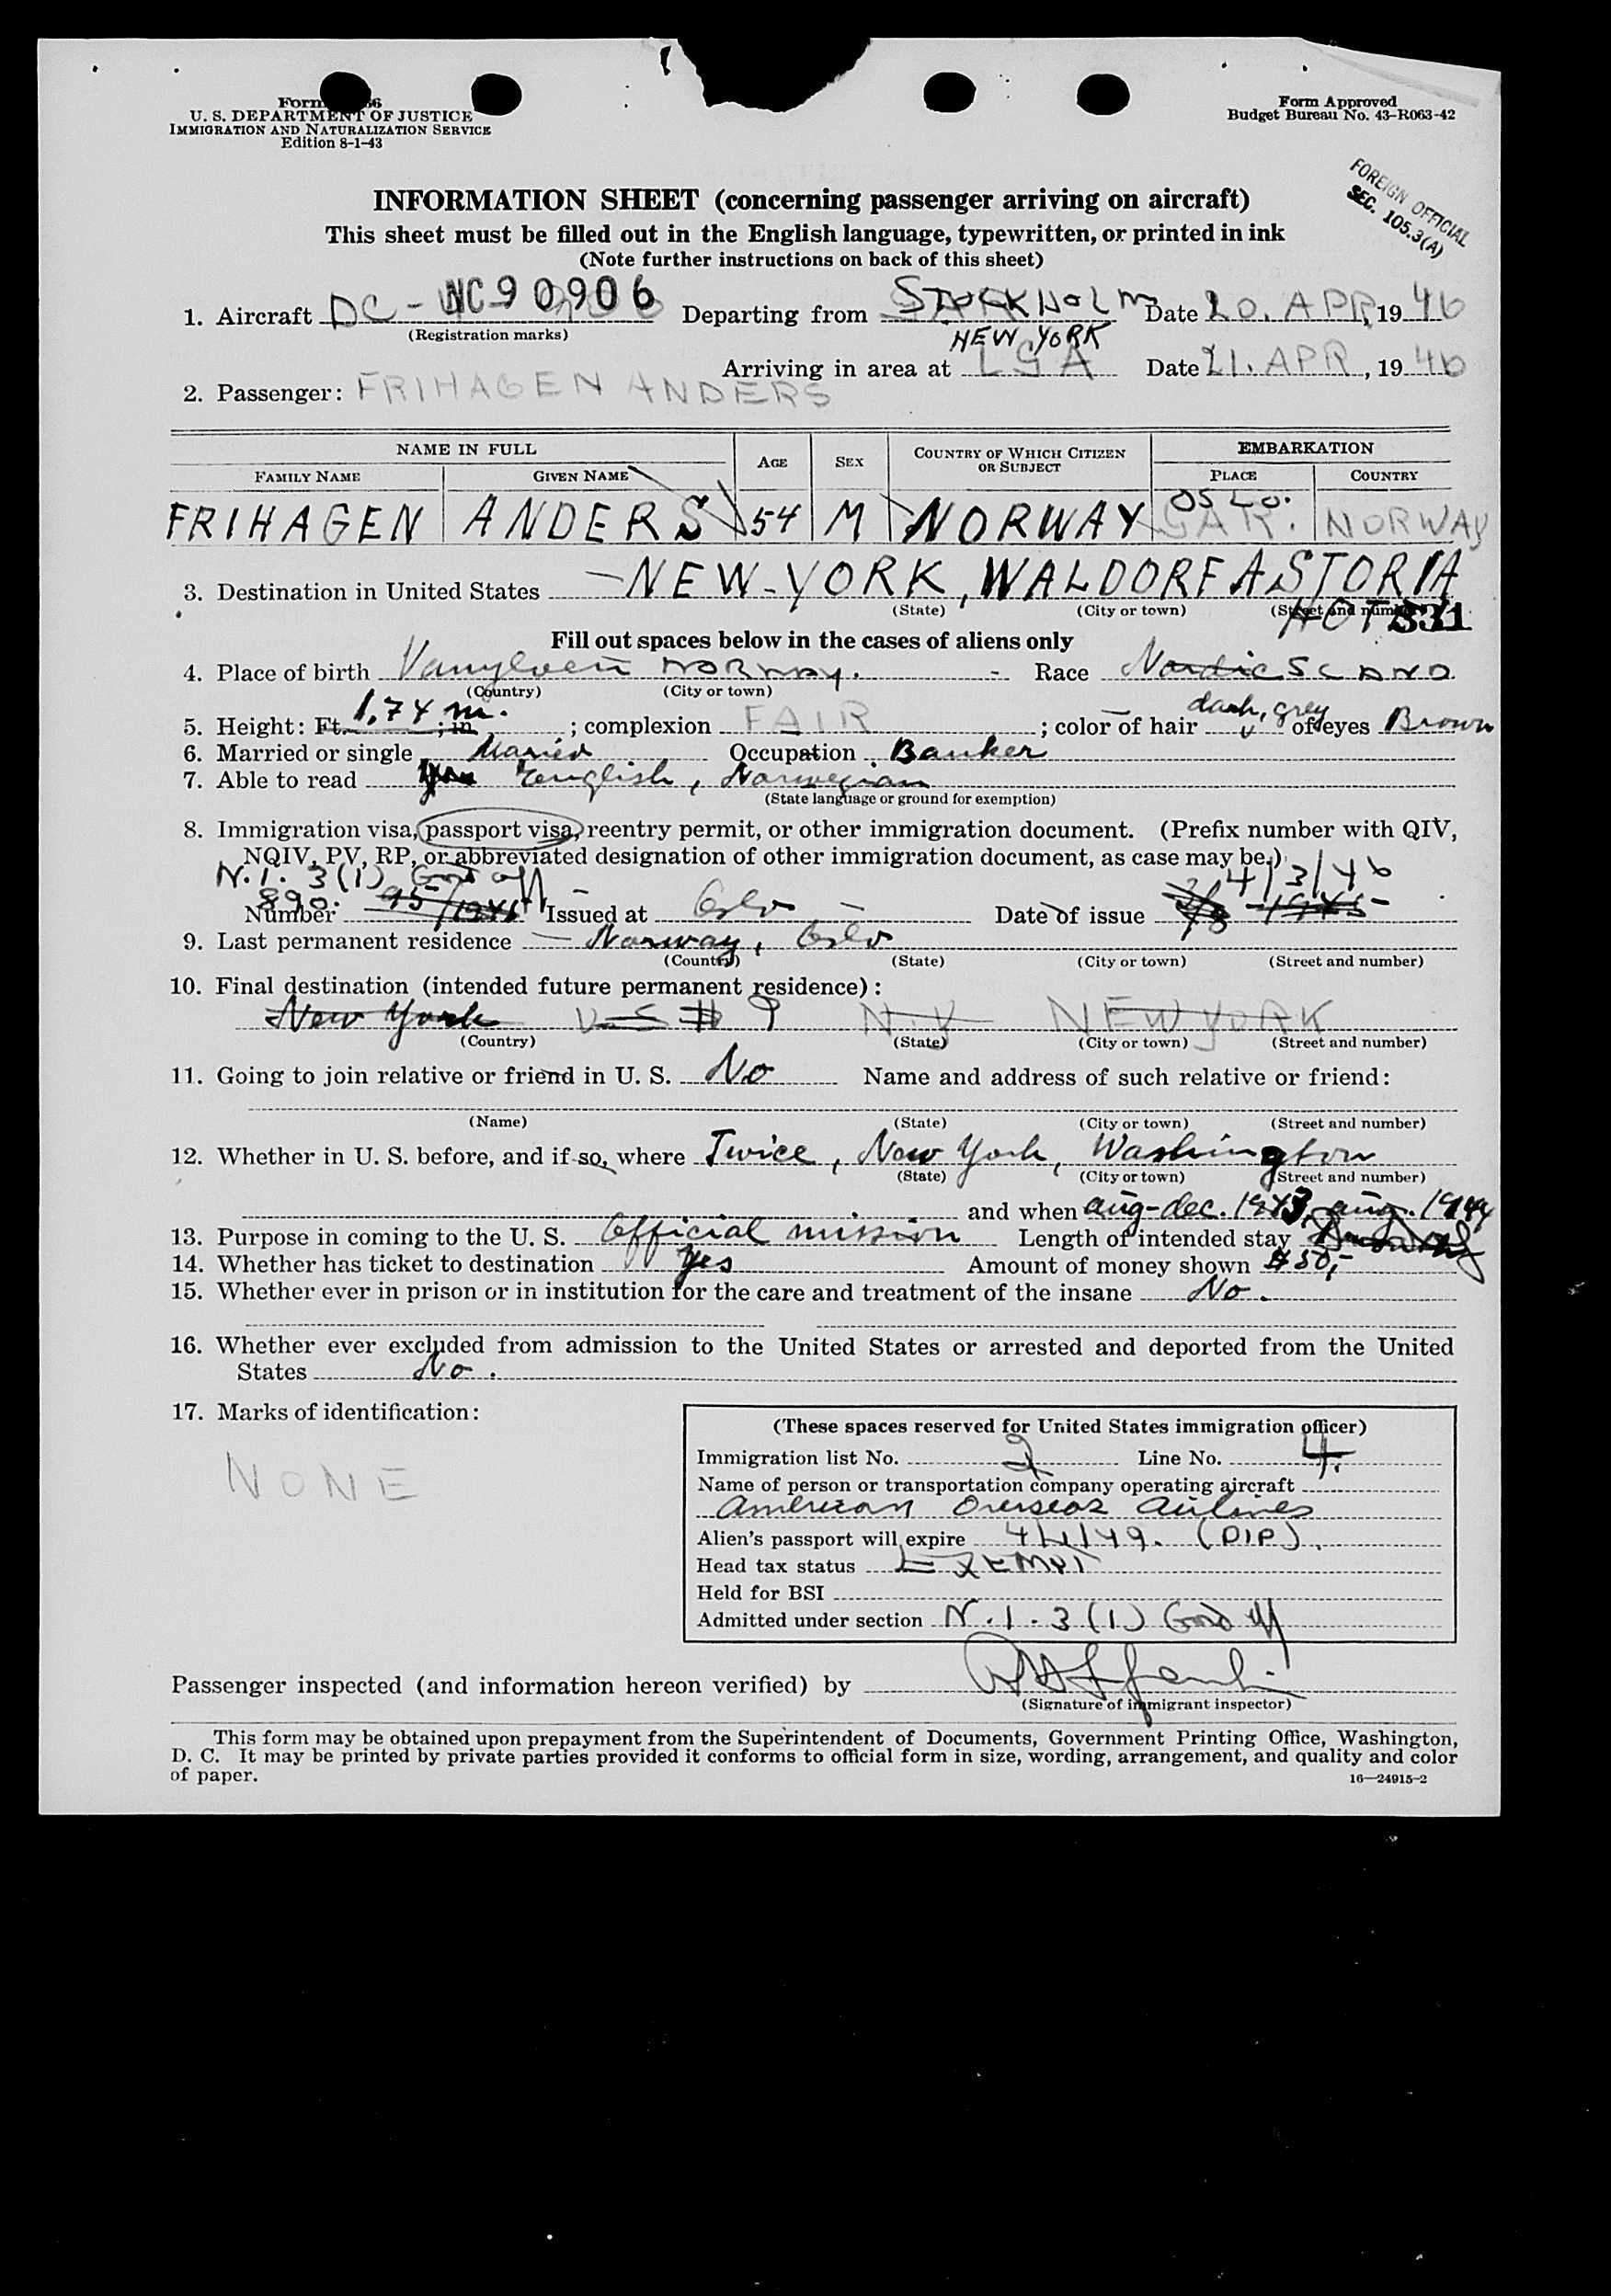 Form 66
U. S. DEPARTMENT OF JUSTICE
IMMIGRATION AND NATURALIZATION SERVICE
Edition 8-1-43
Form Approved
Budget Bureau No. 43-R063-42
FOREIGN OFFICIAL
SEC. 105.3(A)
INFORMATION SHEET (concerning passenger arriving on aircraft)
This sheet must be filled out in the English language, typewritten, or printed in ink
(Note further instructions on back of this sheet)
1. Aircraft DC - NC90906 Departing from STOCKHOLM Date 20. APR, 1946
(Registration marks)
NEW YORK
Arriving in area at LGA Date 21. APR, 1946
2. Passenger: FRIHAGEN ANDERS
NAME IN FULL AGE SEX COUNTRY OF WHICH CITIZEN OR SUBJECT EMBARKATION
FAMILY NAME GIVEN NAME PLACE COUNTRY
OSLO.
FRIHAGEN ANDERS 54 M NORWAY NORWAY
3. Destination in United States NEW-YORK, WALDORF ASTORIA
(State) (City or town) (Street and number)
HOT 331
Fill out spaces below in the cases of aliens only
4. Place of birth Vanylven NORWAY. - Race Nordic SCAND.
(Country) (City or town)
5. Height: Ft. 1,74 m. ; in ; complexion FAIR ; color of hair dark, grey of eyes Brown
6. Married or single Married Occupation Banker
7. Able to read Yes English, Norwegian
(State language or ground for exemption)
8. Immigration visa, passport visa, reentry permit, or other immigration document. (Prefix number with QIV,
NQIV, PV, RP, or abbreviated designation of other immigration document, as case may be.)
N.1. 3(1) Gov't off 4/3/46
Number 890. 95/1945 Issued at Oslo Date of issue 1945
9. Last permanent residence Norway, Oslo
(Country) (State) (City or town) (Street and number)
10. Final destination (intended future permanent residence):
New York U.S # 9 N.Y NEW YORK
(Country) (State) (City or town) (Street and number)
11. Going to join relative or friend in U. S. No Name and address of such relative or friend:
(Name) (State) (City or town) (Street and number)
12. Whether in U. S. before, and if so, where Twice, New York, Washington
(State) (City or town) (Street and number)
and when aug-dec. 1943, aug. 1944
13. Purpose in coming to the U. S. Official mission Length of intended stay
14. Whether has ticket to destination Yes Amount of money shown $50,-
15. Whether ever in prison or in institution for the care and treatment of the insane No.
16. Whether ever excluded from admission to the United States or arrested and deported from the United
States No.
17. Marks of identification:
NONE
(These spaces reserved for United States immigration officer)
Immigration list No. 2 Line No. 4.
Name of person or transportation company operating aircraft
American Overseas Airlines
Alien's passport will expire 4/1/49. (DIP).
Head tax status EXEMPT
Held for BSI
Admitted under section N.1.3(1) Gov't off
Passenger inspected (and information hereon verified) by
(Signature of immigrant inspector)
This form may be obtained upon prepayment from the Superintendent of Documents, Government Printing Office, Washington,
D. C. It may be printed by private parties provided it conforms to official form in size, wording, arrangement, and quality and color
of paper.
16—24915-2